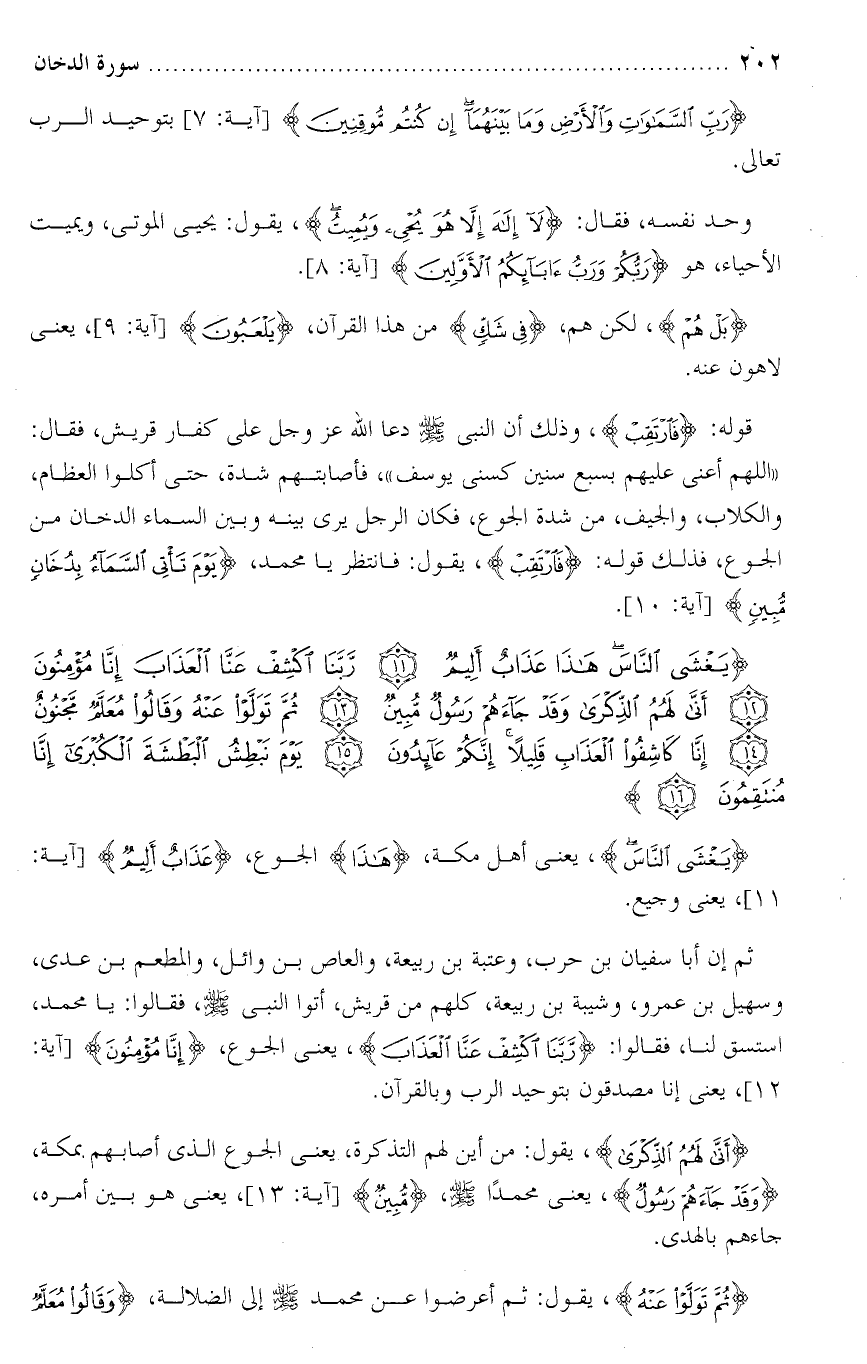 ٢٠٢ ........................................................................ سورة الدخان
﴿رَبِّ ٱلسَّمَٰوَٰتِ وَٱلْأَرْضِ وَمَا بَيْنَهُمَآ ۖ إِن كُنتُم مُّوقِنِينَ﴾ [آية: ٧] بتوحيد الرب
تعالى.
وحد نفسه، فقال: ﴿لَآ إِلَٰهَ إِلَّا هُوَ يُحْىِۦ وَيُمِيتُ ۖ﴾، يقول: يحيى الموتى، ويميت
الأحياء، هو ﴿رَبُّكُمْ وَرَبُّ ءَابَآئِكُمُ ٱلْأَوَّلِينَ﴾ [آية: ٨].
﴿بَلْ هُمْ﴾، لكن هم، ﴿فِى شَكٍّ﴾ من هذا القرآن، ﴿يَلْعَبُونَ﴾ [آية: ٩]، يعنى
لاهون عنه.
قوله: ﴿فَٱرْتَقِبْ﴾، وذلك أن النبى ﷺ دعا الله عز وجل على كفار قريش، فقال:
«اللهم أعنى عليهم بسبع سنين كسنى يوسف»، فأصابتهم شدة، حتى أكلوا العظام،
والكلاب، والجيف، من شدة الجوع، فكان الرجل يرى بينه وبين السماء الدخان من
الجوع، فذلك قوله: ﴿فَٱرْتَقِبْ﴾، يقول: فانتظر يا محمد، ﴿يَوْمَ تَأْتِى ٱلسَّمَآءُ بِدُخَانٍ
مُّبِينٍ﴾ [آية: ١٠].
﴿يَغْشَى ٱلنَّاسَ ۖ هَٰذَا عَذَابٌ أَلِيمٌ ١١ رَّبَّنَا ٱكْشِفْ عَنَّا ٱلْعَذَابَ إِنَّا مُؤْمِنُونَ
١٢ أَنَّىٰ لَهُمُ ٱلذِّكْرَىٰ وَقَدْ جَآءَهُمْ رَسُولٌ مُّبِينٌ ١٣ ثُمَّ تَوَلَّوْا۟ عَنْهُ وَقَالُوا۟ مُعَلَّمٌ مَّجْنُونٌ
١٤ إِنَّا كَاشِفُوا۟ ٱلْعَذَابِ قَلِيلًا ۚ إِنَّكُمْ عَآئِدُونَ ١٥ يَوْمَ نَبْطِشُ ٱلْبَطْشَةَ ٱلْكُبْرَىٰٓ إِنَّا
مُنتَقِمُونَ ١٦﴾
﴿يَغْشَى ٱلنَّاسَ ۖ﴾، يعنى أهل مكة، ﴿هَٰذَا﴾ الجوع، ﴿عَذَابٌ أَلِيمٌ﴾ [آية:
١١]، يعنى وجيع.
ثم إن أبا سفيان بن حرب، وعتبة بن ربيعة، والعاص بن وائل، والمطعم بن عدى،
وسهيل بن عمرو، وشيبة بن ربيعة، كلهم من قريش، أتوا النبى ﷺ، فقالوا: يا محمد،
استسق لنا، فقالوا: ﴿رَّبَّنَا ٱكْشِفْ عَنَّا ٱلْعَذَابَ﴾، يعنى الجوع، ﴿إِنَّا مُؤْمِنُونَ﴾ [آية:
١٢]، يعنى إنا مصدقون بتوحيد الرب وبالقرآن.
﴿أَنَّىٰ لَهُمُ ٱلذِّكْرَىٰ﴾، يقول: من أين لهم التذكرة، يعنى الجوع الذى أصابهم بمكة،
﴿وَقَدْ جَآءَهُمْ رَسُولٌ﴾، يعنى محمدًا ﷺ، ﴿مُّبِينٌ﴾ [آية: ١٣]، يعنى هو بين أمره،
جاءهم بالهدى.
﴿ثُمَّ تَوَلَّوْا۟ عَنْهُ﴾، يقول: ثم أعرضوا عن محمد ﷺ إلى الضلالة، ﴿وَقَالُوا۟ مُعَلَّمٌ